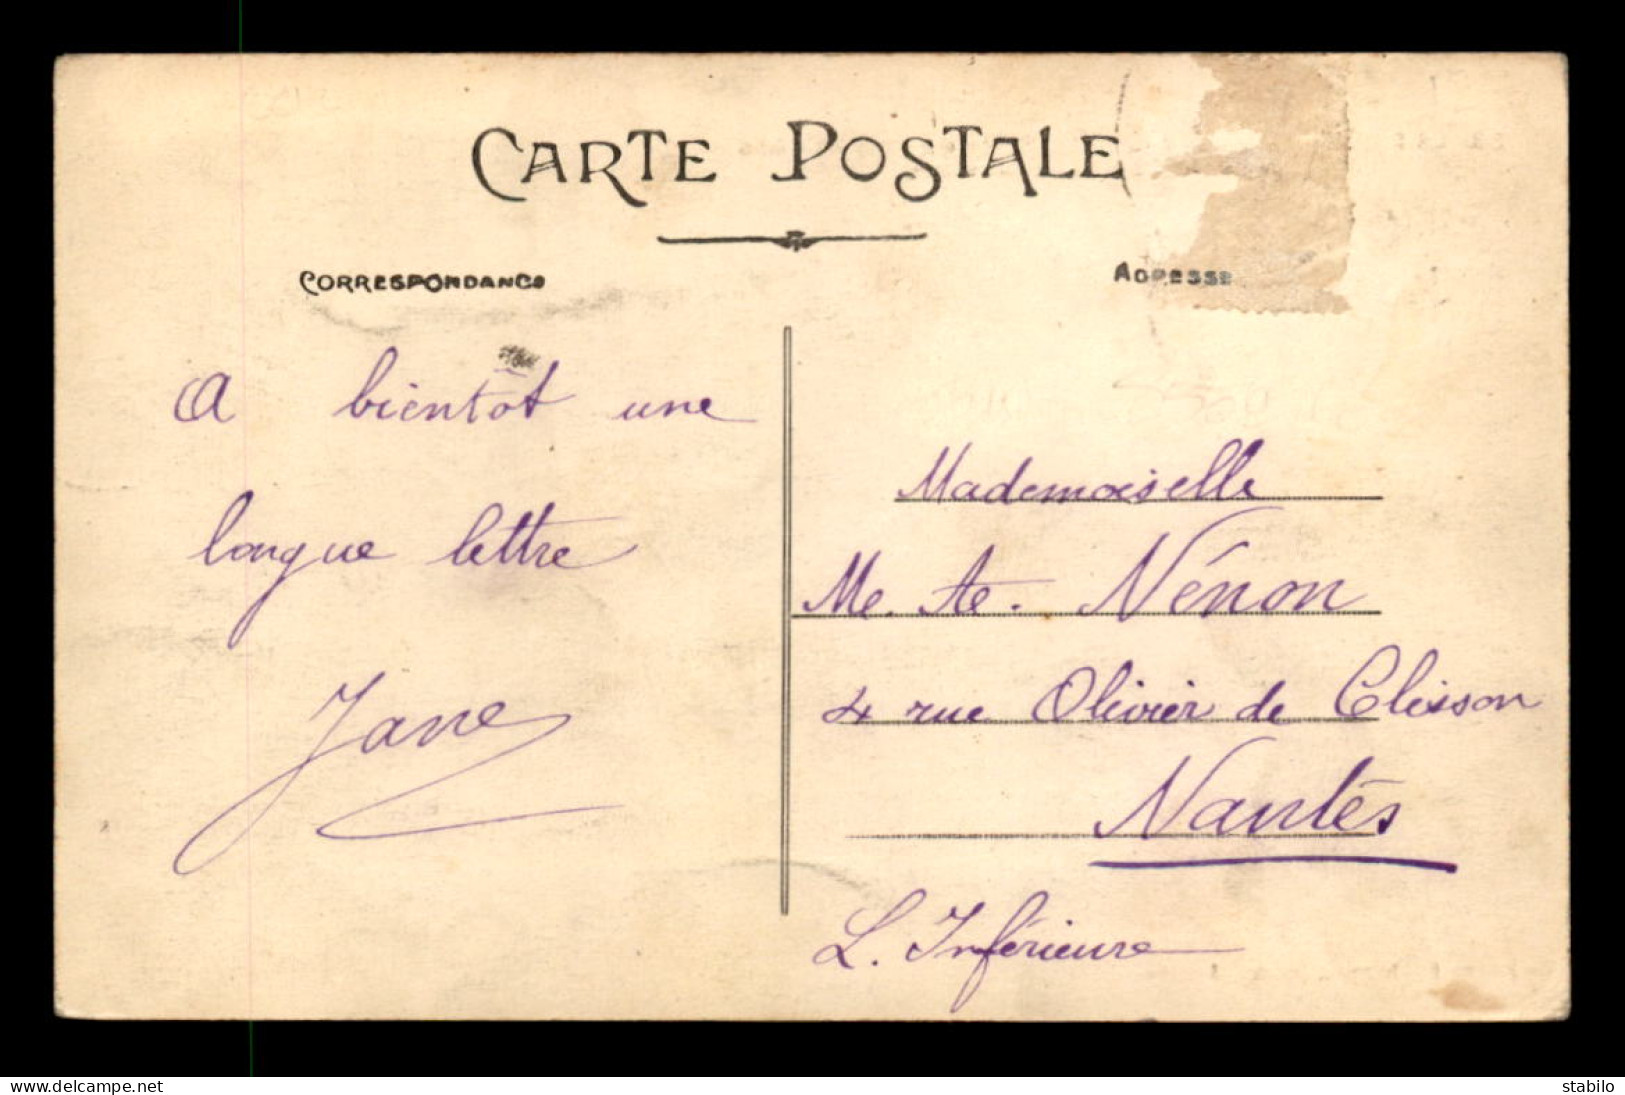 CARTE POSTALE
CORRESPONDANCE
ADRESSE
A bientôt une
longue lettre
Jane
Mademoiselle
Me. Te. Nénon
4 rue Olivier de Clisson
Nantes
L. Inférieure
www.delcampe.net
stabilo